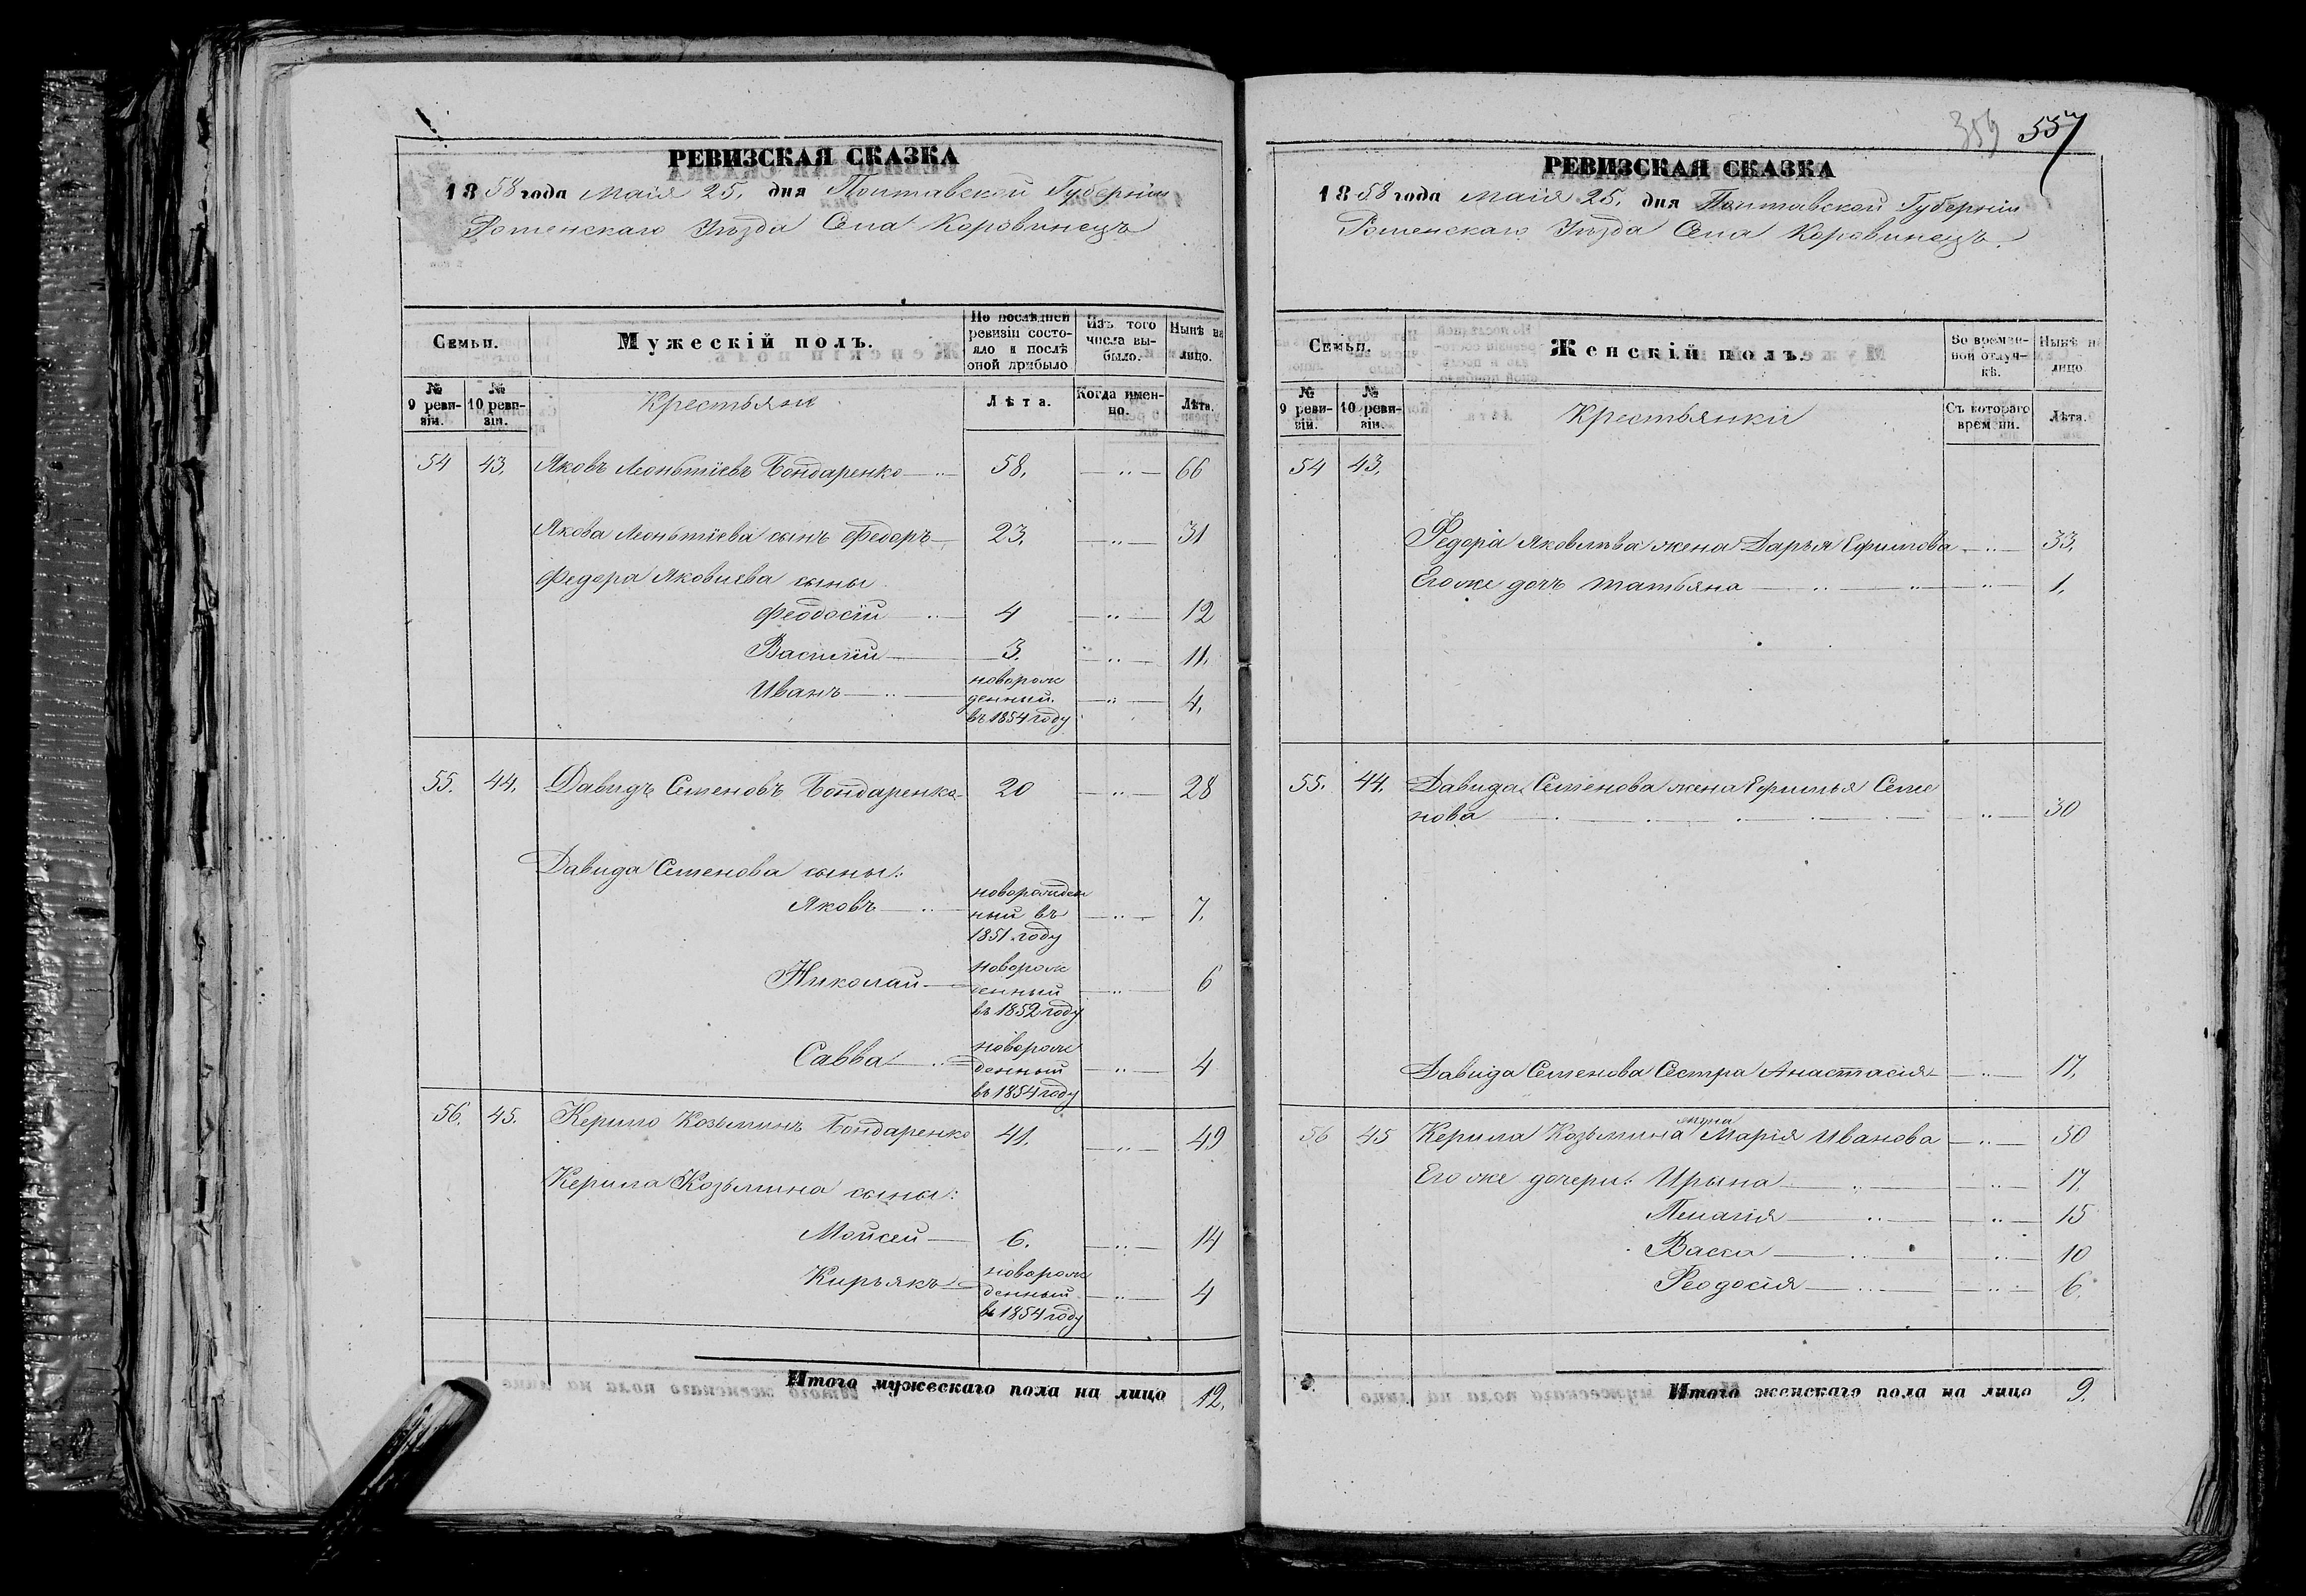 РЕВИЗСКАЯ СКАЗКА
1858 года Маія 25. дня Полтавской Губерніи
Роменскаго Уѣзда Села Коровинецъ
Семьи.
Мужескій полъ.
По послѣдней ревизіи состояло и послѣ оной прибыло
Изъ того числа выбыло.
Нынѣ на лицо.
№ 9 ревизіи.
№ 10 ревизіи.
Крестьяне
Лѣта.
Когда именно.
Лѣта.
54 43. Яковъ Леонтіевъ Бондаренко 58. 66
Якова Леонтіева сынъ Федоръ 23. 31
Федора Яковлева сыны
Феодосій 4 12
Василій 3. 11.
Иванъ новорож
денный
въ 1854 году 4.
55. 44. Давидъ Семеновъ Бондаренко 20 28
Давида Семенова сыны:
Яковъ новорожден
ный въ
1851 году 7.
Николай новорож
денный
въ 1852 году 6
Савва новорож
денный
въ 1854 году 4
56. 45. Керило Козьминъ Бондаренко 41. 49
Керила Козьмина сыны:
Мойсей 6. 14
Кирьякъ новорож
денный
въ 1854 году 4
Итого мужескаго пола на лицо 12.
359 557
РЕВИЗСКАЯ СКАЗКА
1858 года Маія 25. дня Полтавской Губерніи
Роменскаго Уѣзда Села Коровинецъ.
Семьи.
Женскій полъ.
Во временной отлучкѣ.
Нынѣ на лицо
№ 9 ревизіи.
№ 10 ревизіи.
Крестьянки
Съ котораго времени.
Лѣта.
54 43.
Федора Яковлева жена Дарья Ефимова 33.
Его же дочь Татьяна 1.
55. 44. Давида Семенова жена Ефимья Семе
нова 30
Давида Семенова Сестра Анастасія 17.
56 45 Керила Козьмина жена Марія Иванова 50
Его же дочери: Ирына 17.
Пелагія 15
Васса 10
Феодосія 6.
Итого женскаго пола на лицо 9.